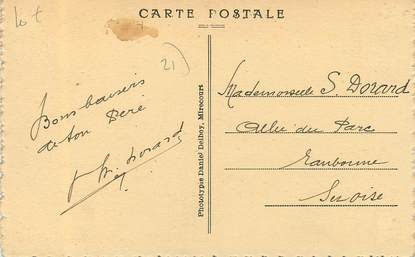 lot
CARTE POSTALE
21)
Bons baisers
de ton Père
Dorard
Phototypie Daniel Delboy, Mirecourt
Mademoiselle S. Dorard
Allée du Parc
Eaubonne
S. et Oise